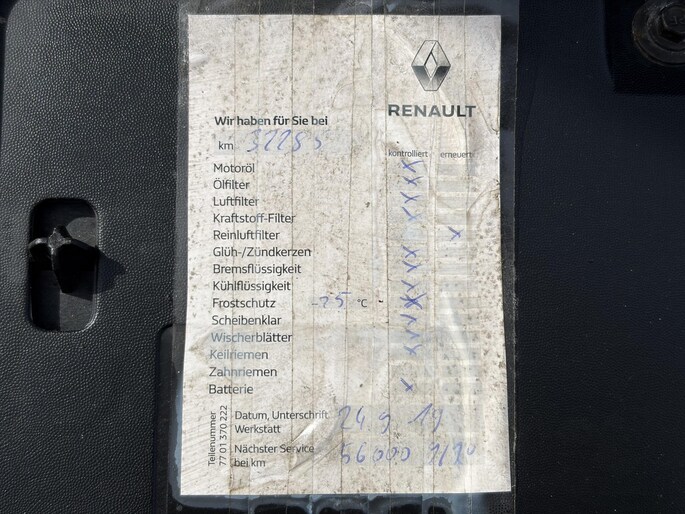 RENAULT
Wir haben für Sie bei
km 32285
kontrolliert erneuert
Motoröl x
Ölfilter x
Luftfilter x
Kraftstoff-Filter x
Reinluftfilter x
Glüh-/Zündkerzen x
Bremsflüssigkeit x
Kühlflüssigkeit x
Frostschutz -25 °C - x
Scheibenklar
Wischerblätter
Keilriemen x
Zahnriemen
Batterie x
Datum, Unterschrift 24 9 19
Werkstatt
Nächster Service 56000
bei km
Teilenummer
77 01 370 222